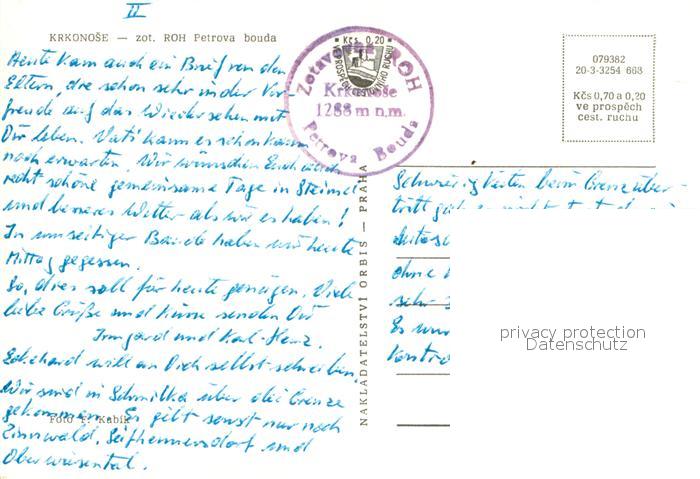 II
KRKONOŠE – zot. ROH Petrova bouda
Heute kam auch ein Brief von den
Eltern, die schon sehr in der Vor-
freude auf das Wiedersehen mit
Dir leben. Vati kann es schon kaum
noch erwarten. Wir wünschen Euch
recht schöne gemeinsame Tage in
und besseres Wetter als wir es haben!
In umseitiger Baude haben wir heute
Mittag gegessen.
So, dies soll für heute genügen. Viele
liebe Grüße und Küsse senden Dir
Irmgard und Karl-Heinz.
Eckehard will an Dich selbst schreiben.
Wir sind in Schmilka über die Grenze
gekommen. Es gibt sonst nur noch
Zinnwald, Seifhennersdorf und
Oberwiesental.
Foto F. Kabík
NAKLADATELSTVÍ ORBIS — PRAHA
Kčs 0,20
VE PROSPĚCH RUCHU
Zotavovna ROH
Krkonoše
1288 m n.m.
Petrova Bouda
079382
20-3-3254 668
Kčs 0,70 a 0,20
ve prospěch
cest. ruchu
Schwierigkeiten beim Grenzüber-
tritt
ohne
sehr
Es
Kontro
privacy protection
Datenschutz